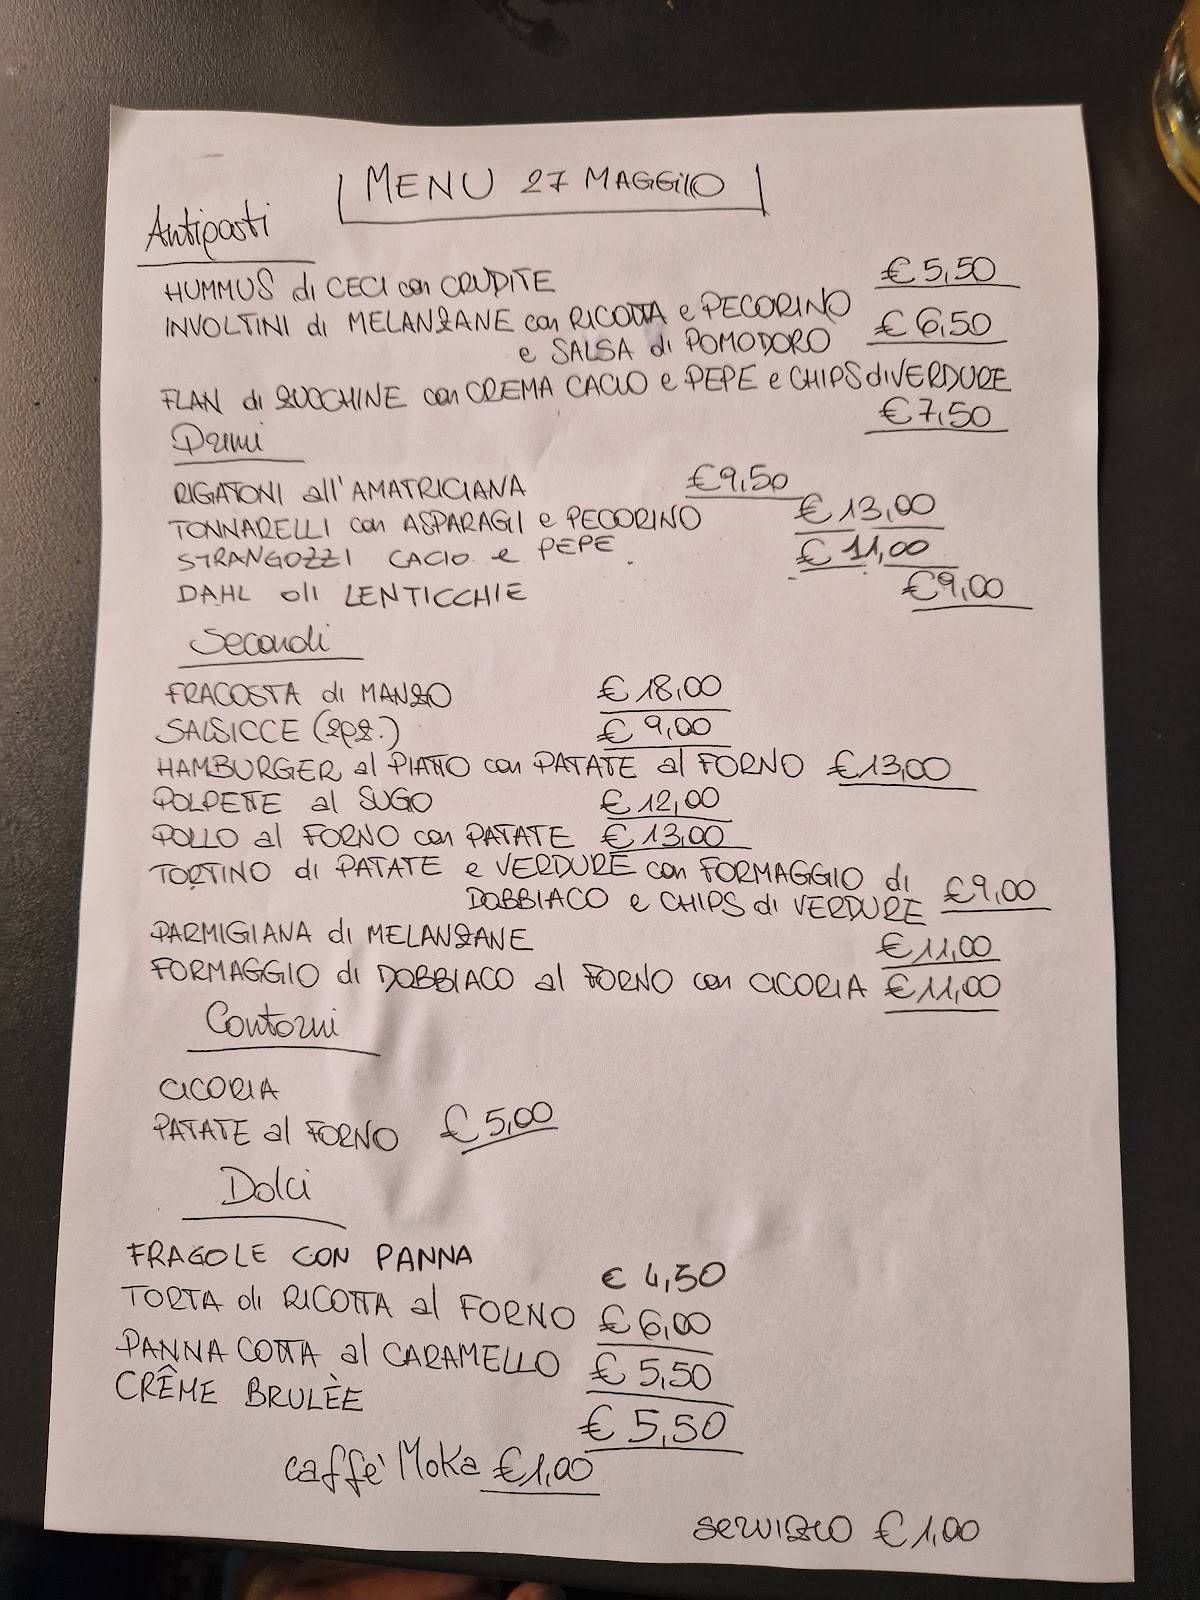 MENU 27 MAGGIIO
Antipasti
HUMMUS di CECI con CRUDITE € 5,50
INVOLTINI di MELANZANE con RICOTTA e PECORINO € 6,50
e SALSA di POMODORO
FLAN di ZUCCHINE con CREMA CACIO e PEPE e CHIPS di VERDURE
€ 7,50
Primi
RIGATONI all'AMATRICIANA € 9,50
TONNARELLI con ASPARAGI e PECORINO € 13,00
STRANGOZZI CACIO e PEPE € 11,00
DAHL di LENTICCHIE € 9,00
Secondi
FRACOSTA di MANZO € 18,00
SALSICCE (2pz.) € 9,00
HAMBURGER al PIATTO con PATATE al FORNO € 13,00
POLPETTE al SUGO € 12,00
POLLO al FORNO con PATATE € 13,00
TORTINO di PATATE e VERDURE con FORMAGGIO di
DOBBIACO e CHIPS di VERDURE € 9,00
PARMIGIANA di MELANZANE € 11,00
FORMAGGIO di DOBBIACO al FORNO con CICORIA € 11,00
Contorni
CICORIA
PATATE al FORNO € 5,00
Dolci
FRAGOLE CON PANNA € 4,50
TORTA di RICOTTA al FORNO € 6,00
PANNA COTTA al CARAMELLO € 5,50
CRÊME BRULÈE € 5,50
caffè Moka € 1,00
SERVIZIO € 1,00